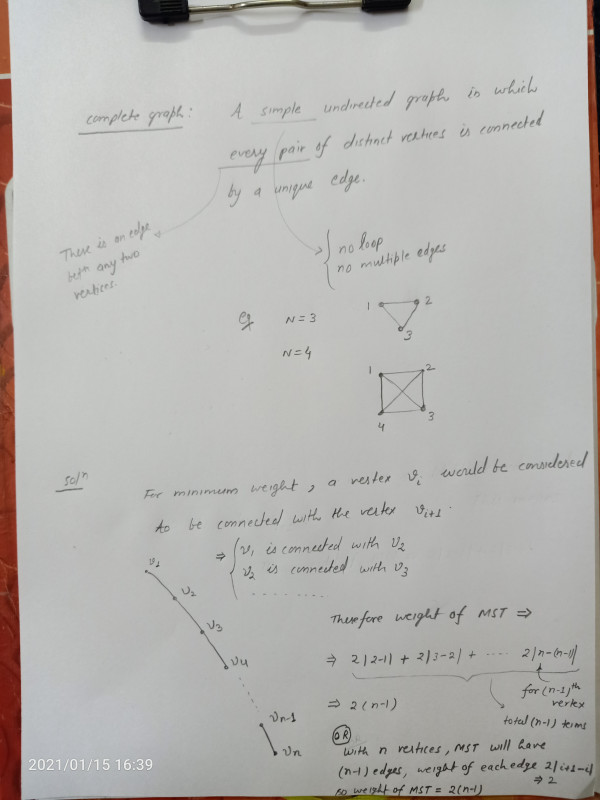 complete graph: A simple undirected graph in which
every pair of distinct vertices is connected
by a unique edge.
There is an edge
betn any two
vertices.
no loop
no multiple edges
eg N=3
1 2
3
N=4
1 2
4 3
soln
For minimum weight, a vertex vi would be considered
to be connected with the vertex vi+1.
⇒ { v1 is connected with v2
v2 is connected with v3
........
v1
v2
v3
v4
vn-1
vn
Therefore weight of MST ⇒
⇒ 2|2-1| + 2|3-2| + ..... 2|n-(n-1)|
for (n-1)th
vertex
total (n-1) terms
⇒ 2(n-1)
OR
With n vertices, MST will have
(n-1) edges, weight of each edge 2|i+1-i|
⇒ 2
so weight of MST = 2(n-1)
2021/01/15 16:39